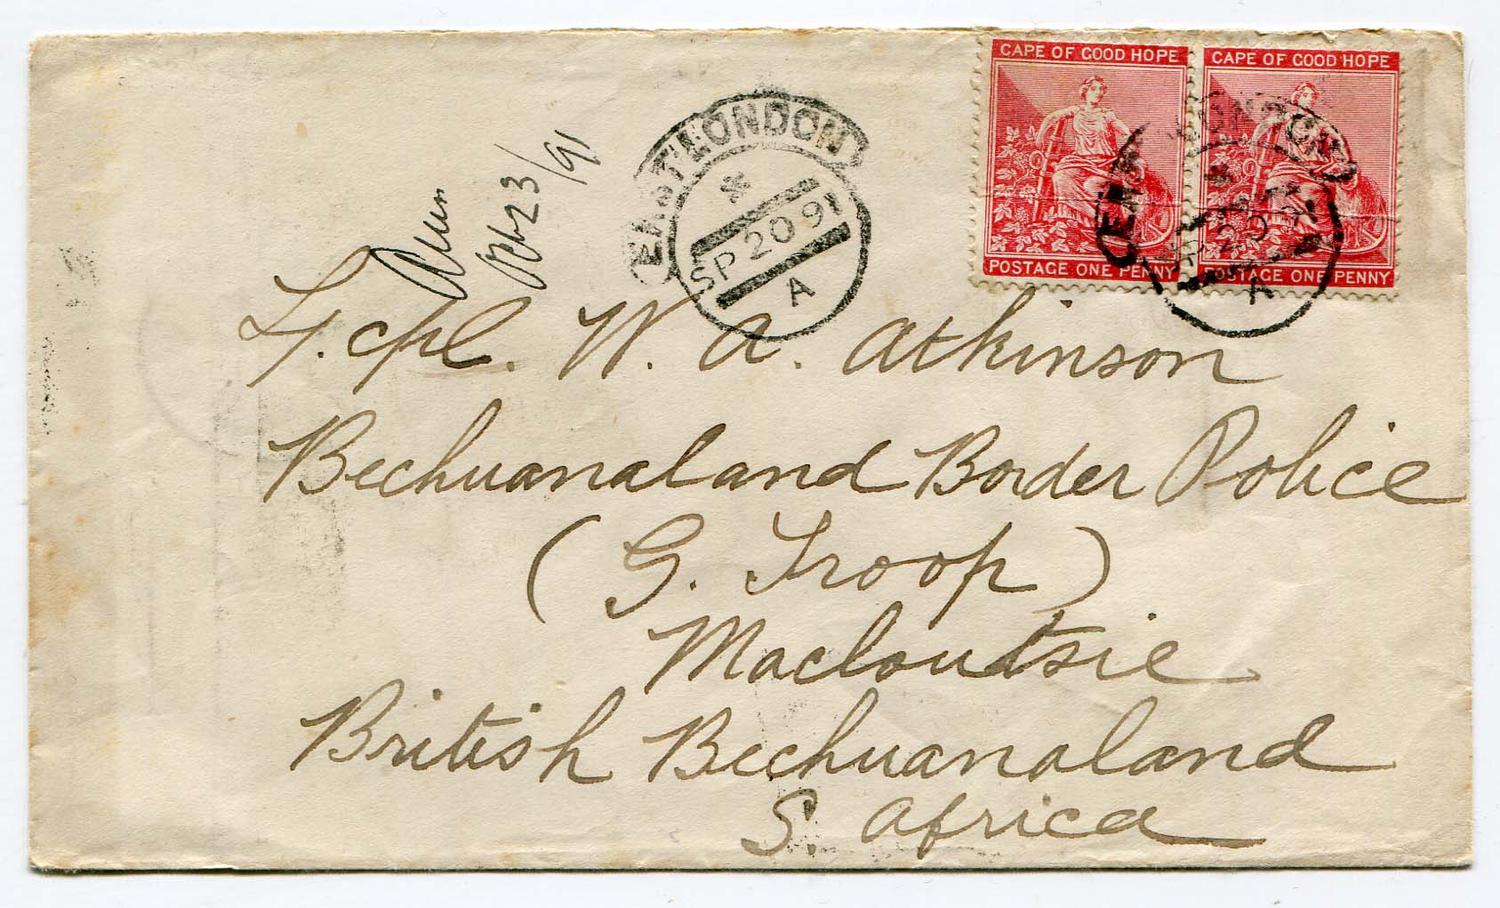 CAPE OF GOOD HOPE
POSTAGE ONE PENNY
CAPE OF GOOD HOPE
POSTAGE ONE PENNY
EAST LONDON
SP 20 91
A
LONDON
20
A
23/91
L. cpl. W. A. Atkinson
Bechuanaland Border Police
(G. Troop)
Macloutsie
British Bechuanaland
S. Africa